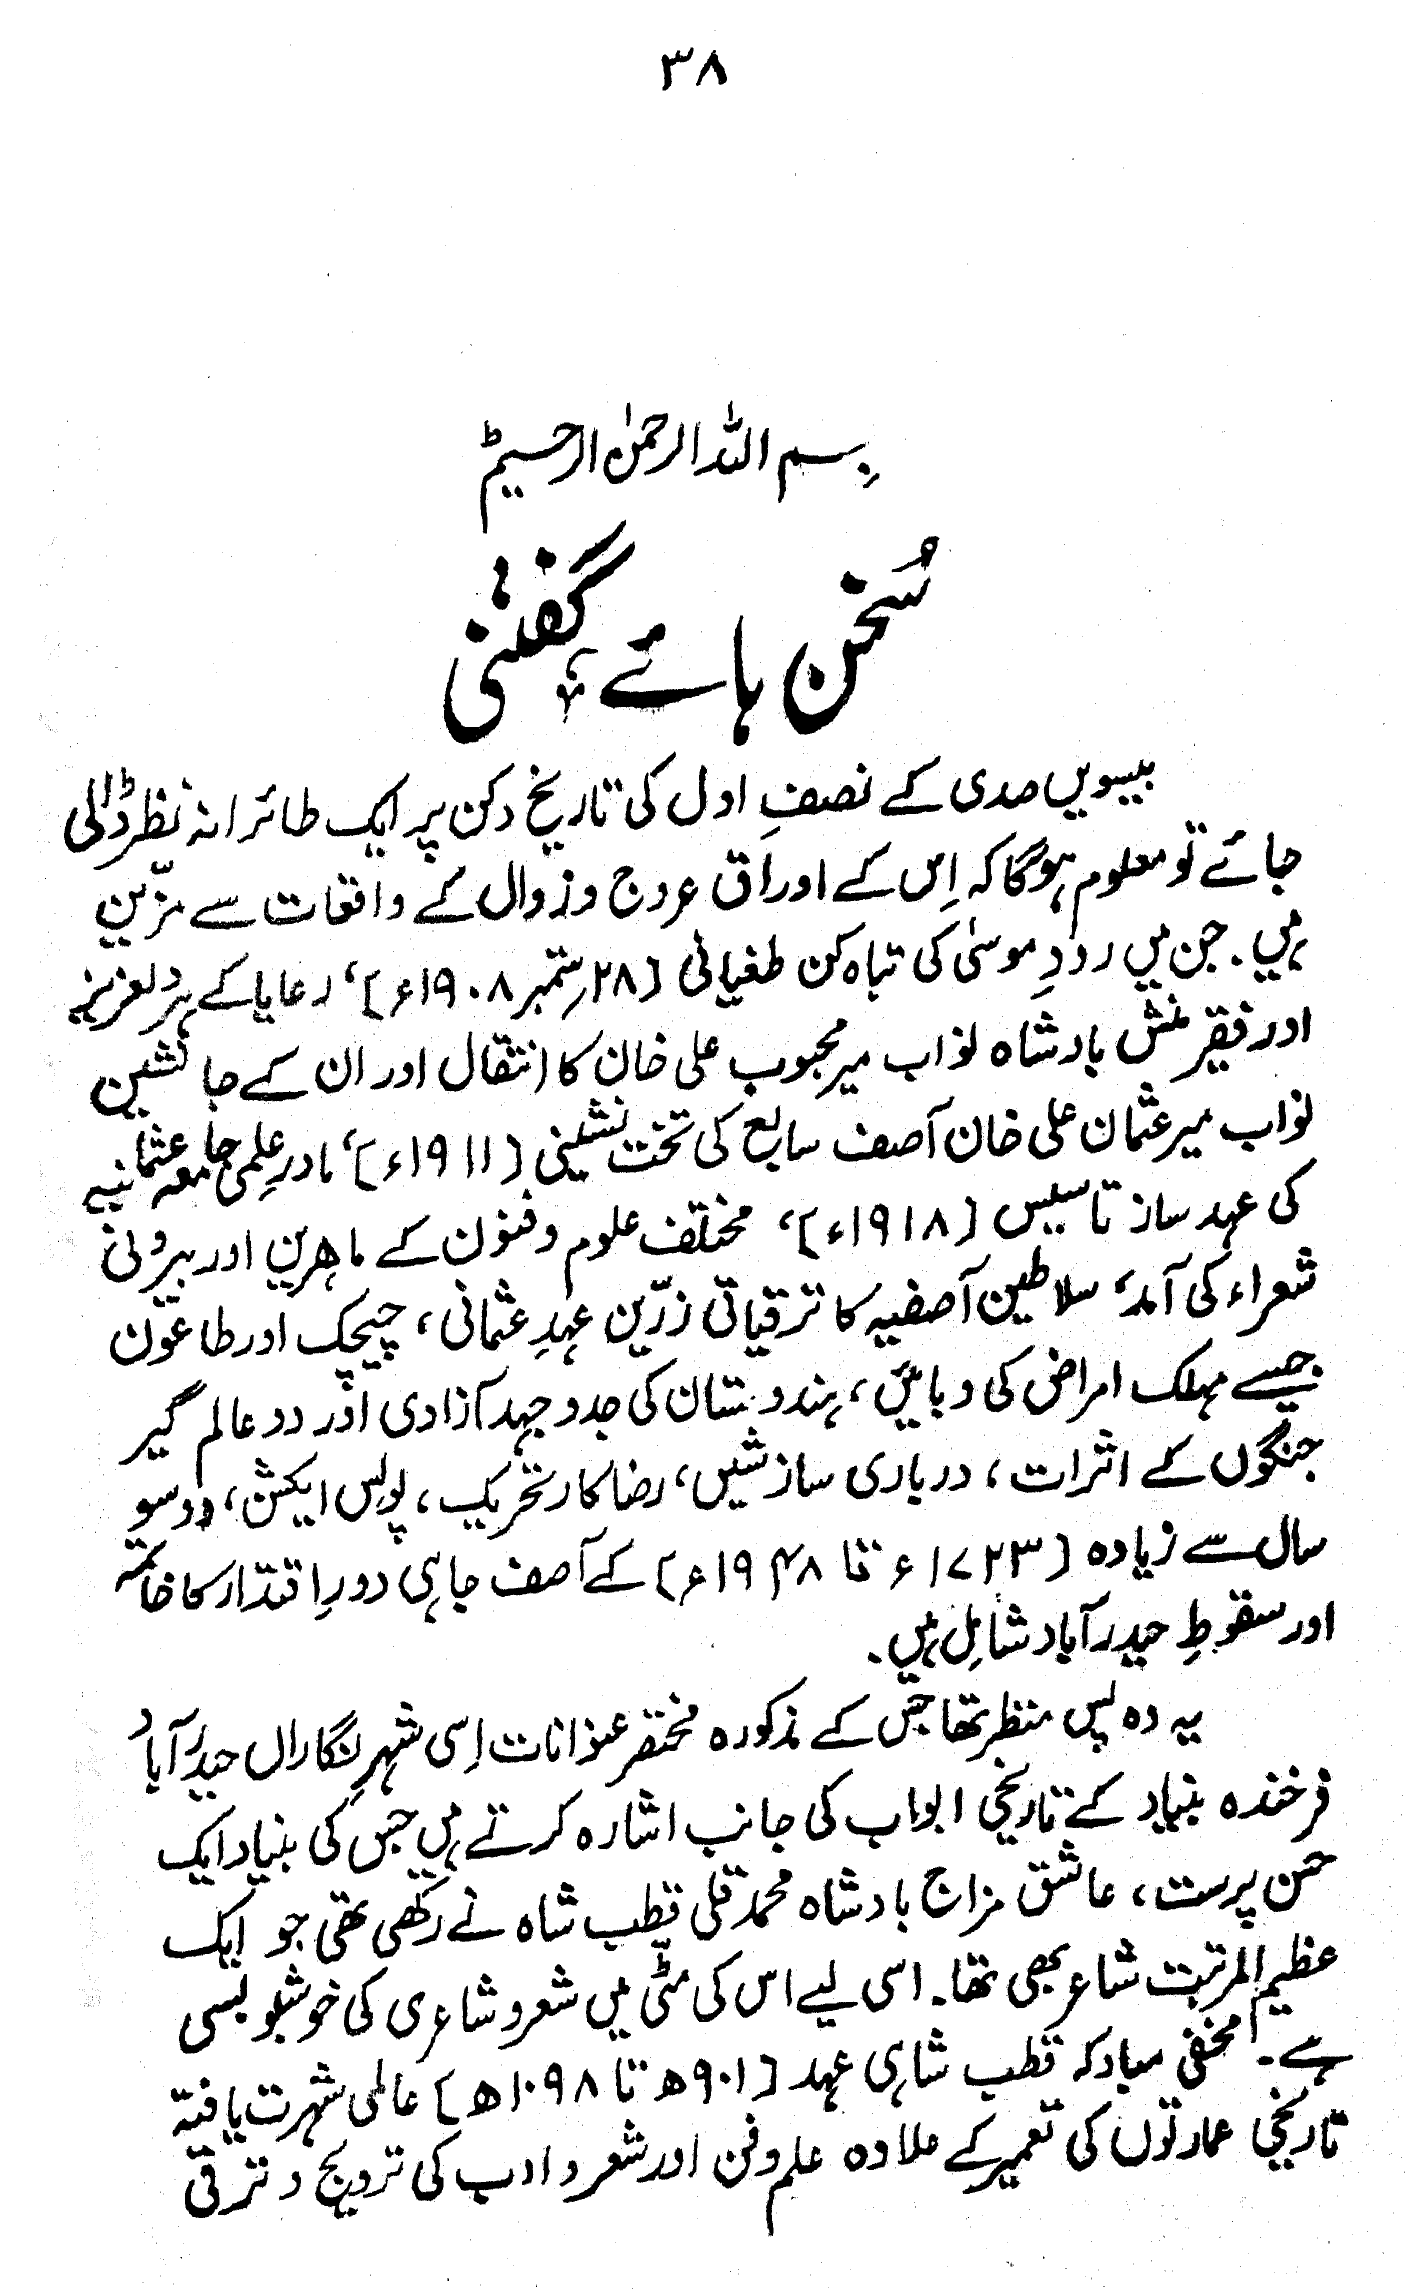 ۳۸
بسم اللہ الرحمٰن الرحیم
سُخن ہائے گفتنی
بیسویں صدی کے نصفِ اول کی تاریخ دکن پر ایک طائرانہ نظر ڈالی
جائے تو معلوم ہوگا کہ اِس کے اوراق عروج و زوال کے واقعات سے مزّین
ہیں۔ جن میں رودِ موسیٰ کی تباہ کن طغیانی [۲۸ ستمبر ۱۹۰۸ء]، رعایا کے ہردلعزیز
اور فقیر منش بادشاہ نواب میر محبوب علی خان کا انتقال اور ان کے جانشین
نواب میر عثمان علی خان آصف سابع کی تخت نشینی [۱۹۱۱ء]، مادرِ علمی جامعہ عثمانیہ
کی عہد ساز تاسیس [۱۹۱۸ء]، مختلف علوم و فنون کے ماہرین اور بیرونی
شعراء کی آمد، سلاطین آصفیہ کا ترقیاتی زرّین عہدِ عثمانی، چیچک اور طاعون
جیسے مہلک امراض کی وبائیں، ہندوستان کی جدوجہد آزادی اور دو عالم گیر
جنگوں کے اثرات، درباری سازشیں، رضا کار تحریک، پولس ایکشن، دو سو
سال سے زیادہ [۱۷۲۳ء تا ۱۹۴۸ء] کے آصف جاہی دورِ اقتدار کا خاتمہ
اور سقوطِ حیدرآباد شامِل ہیں۔
یہ وہ پس منظر تھا جس کے مذکورہ مختصر عنوانات اِسی شہرِ نگاراں حیدرآباد
فرخندہ بنیاد کے تاریخی ابواب کی جانب اشارہ کرتے ہیں جس کی بنیاد ایک
حسن پرست، عاشق مزاج بادشاہ محمد قلی قطب شاہ نے رکھی تھی جو ایک
عظیم المرتبت شاعر بھی تھا۔ اسی لیے اس کی مٹّی میں شعر و شاعری کی خوشبو بسی
ہے۔ مخفی مباد کہ قطب شاہی عہد [۹۰۱ھ تا ۱۰۹۸ھ] عالمی شہرت یافتہ
تاریخی عمارتوں کی تعمیر کے علاوہ علم و فن اور شعر و ادب کی ترویج و ترقی